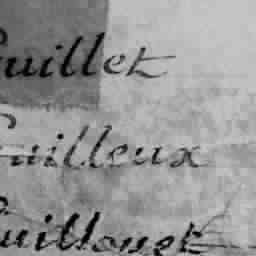 Guillet
Guilleux
Guillouet